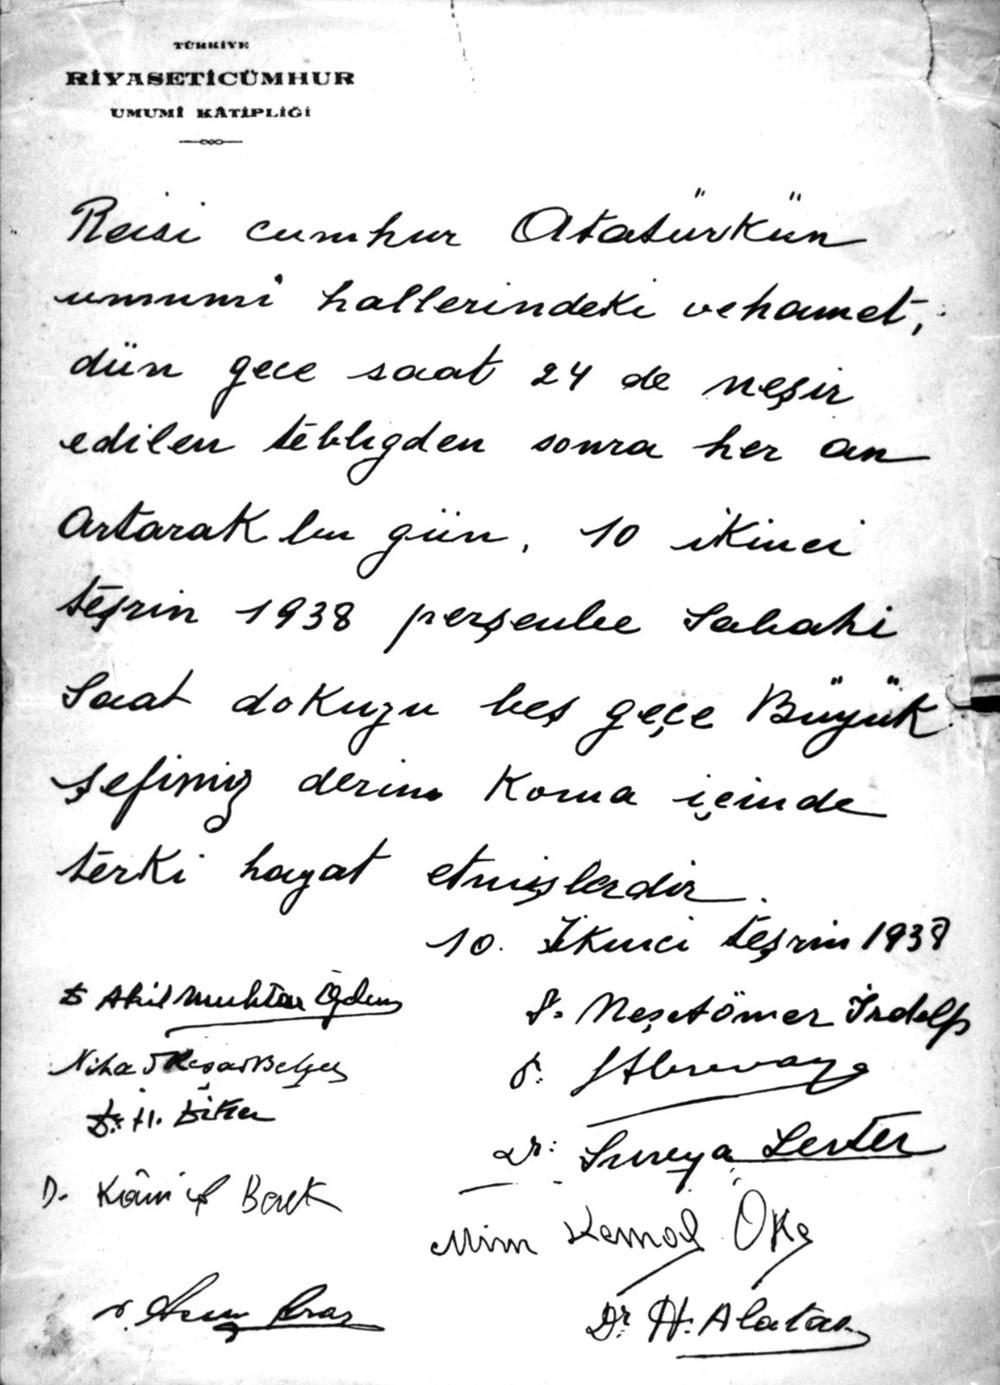 TÜRKİYE
RİYASETİCÜMHUR
UMUMÎ KÂTİPLİĞİ
Reisi cumhur Atatürkün
umumî hallerindeki vehamet,
dün gece saat 24 de neşir
edilen tebligden sonra her an
artarak bu gün, 10 ikinci
teşrin 1938 perşenbe sabahi
saat dokuzu beş geçe Büyük
şefimiz derin koma içinde
terki hayat etmişlerdir.
10. İkinci teşrin 1938
Dr Akil Muhtar Özden
Dr. Neşetömer İrdelp
Nihad Reşad Belger
Dr. H. Diker
Dr: Süreya Serter
Dr. Kâmil Berk
Mim Kemal Öke
Dr. Aras
Dr. H. Alatas